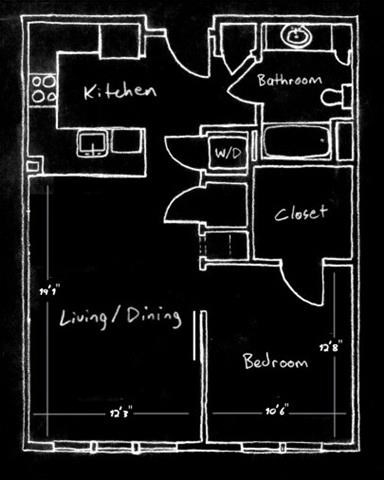 Kitchen
Bathroom
W/D
Closet
14'1"
Living/Dining
12'8"
Bedroom
12'3"
10'6"